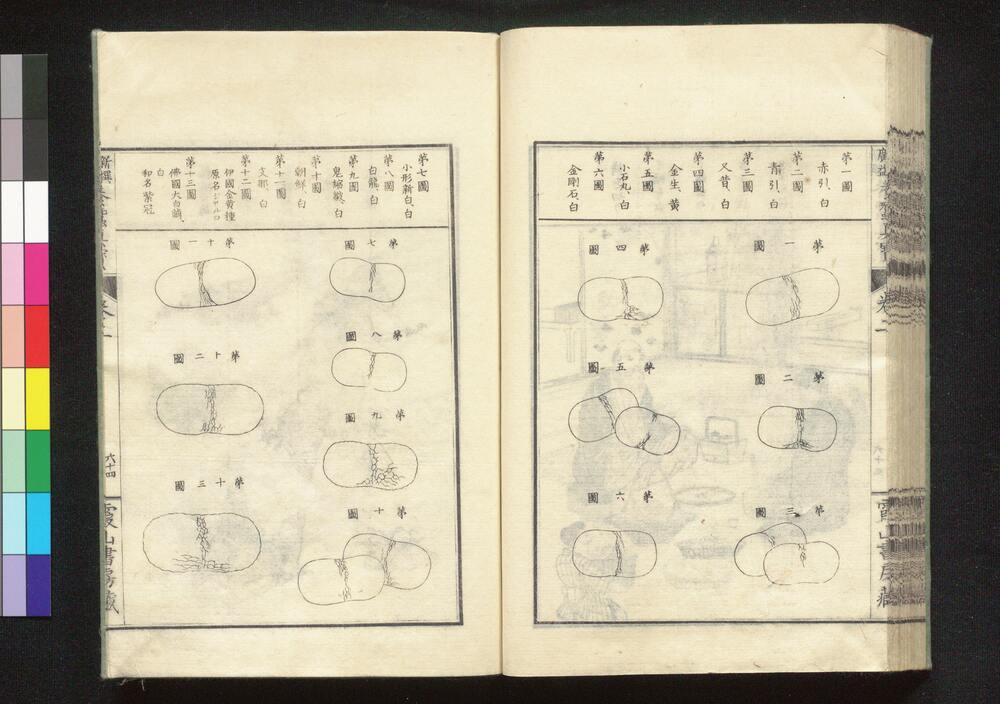 第一圖
赤引、白
第二圖
青引、白
第三圖
又昔、白
第四圖
金生、黄
第五圖
小石丸、白
第六圖
金剛石、白
第一圖
第二圖
第三圖
第四圖
第五圖
第六圖
第七圖
小形新白、白
第八圖
白龍、白
第九圖
鬼縮戟、白
第十圖
朝鮮、白
第十一圖
支那、白
第十二圖
伊國金黄種
第十三圖
佛國大白繭、
白
和名紫冠
第七圖
第八圖
第九圖
第十圖
第十一圖
第十二圖
第十三圖
六十四
霞山書房藏